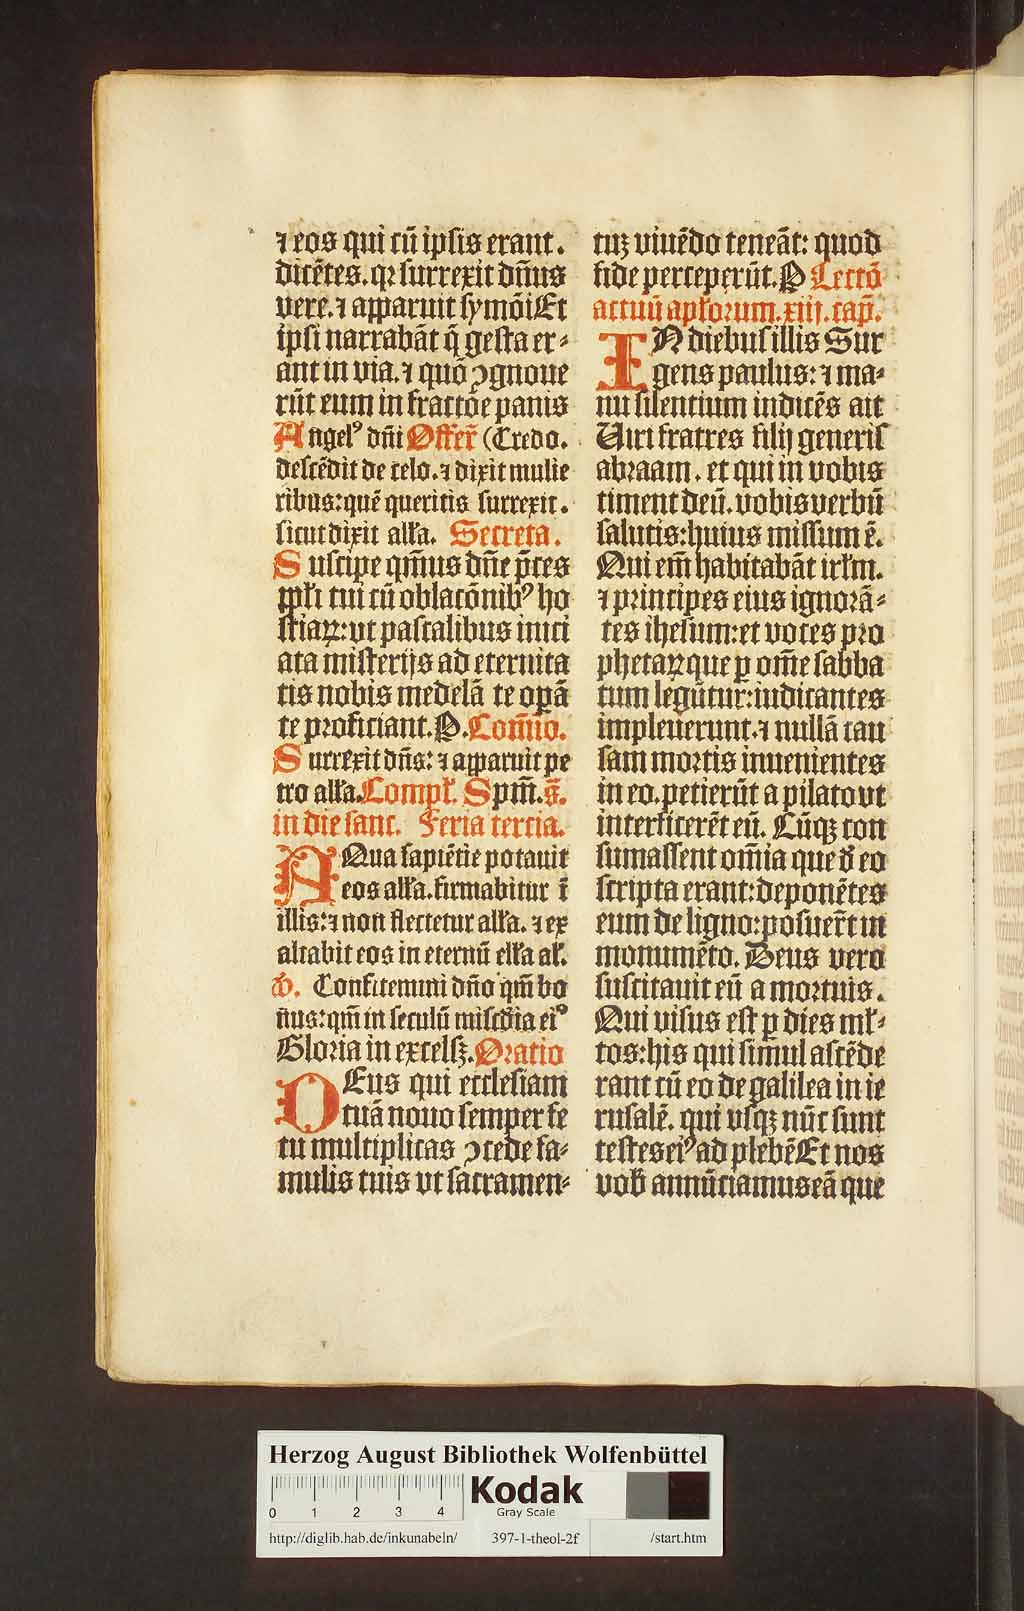 ⁊ eos qui cū ipsis erant.
dicētes. qꝛ surrexit dn̄us
vere. ⁊ apparuit symōi Et
ipsi narrabāt q̄ gesta er⸗
ant in via. ⁊ quō ↄgnoue
rūt eum in fractōe panis
Angelꝰ dn̄i Offer̄ (Credo.
descēdit de celo. ⁊ dixit mulie
ribus: quē queritis surrexit.
sicut dixit alł̓a. Secreta.
Suscipe qm̄us dn̄e p̄ces
ppłi tui cū oblacōnibꝰ ho
stiaꝝ: vt pascalibus inici
ata misterijs ad eternita
tis nobis medelā te opā
te proficiant. P. Com̄io.
Surrexit dn̄s: ⁊ apparuit pe
tro alła. Compł. Spm̄. s̄.
in die sanc. Feria tercia.
AQua sapiētie potauit
eos alła. firmabitur ī
illis: ⁊ non flectetur alła. ⁊ ex
altabit eos in eternū ełła ał.
p̄s. Confitemini dn̄o qm̄ bo
nus: qm̄ in seculū misc̄dia eiꝰ
Gloria in excelsꝫ. Oratio
DEus qui ecclesiam
tuā nouo semper fe
tu multiplicas ↄcede fa⸗
mulis tuis vt sacramen⸗
tuꝫ viuēdo teneāt: quod
fide perceperūt. P Lectō
actuū apłorum. xiij. cap̄.
IN diebus illis Sur
gens paulus: ⁊ ma⸗
nu silentium indicēs ait
Uiri fratres filij generis
abraam. et qui in vobis
timent deū. vobis verbū
salutis: huius missum ē.
Qui em̄ habitabāt irłm.
⁊ principes eius ignorā⸗
tes ihesum: et voces pro
phetaꝝ que ꝑ om̄e sabba
tum legūtur: iudicantes
impleuerunt. ⁊ nullā cau
sam mortis inuenientes
in eo. petierūt a pilato vt
interficerēt eū. Cūqꝫ con
sumassent om̄ia que d̓ eo
scripta erant: deponētes
eum de ligno: posuer̄t in
monumēto. Deus vero
suscitauit eū a mortuis.
Qui visus est ꝑ dies mł⸗
tos: his qui simul ascēde
rant cū eo de galilea in ie
rusalē. qui vsqꝫ nūc sunt
testes eiꝰ ad plebē Et nos
vob̄ annūciamus eā que
Herzog August Bibliothek Wolfenbüttel
0 1 2 3 4
Kodak
Gray Scale
http://diglib.hab.de/inkunabeln/ 397-1-theol-2f /start.htm